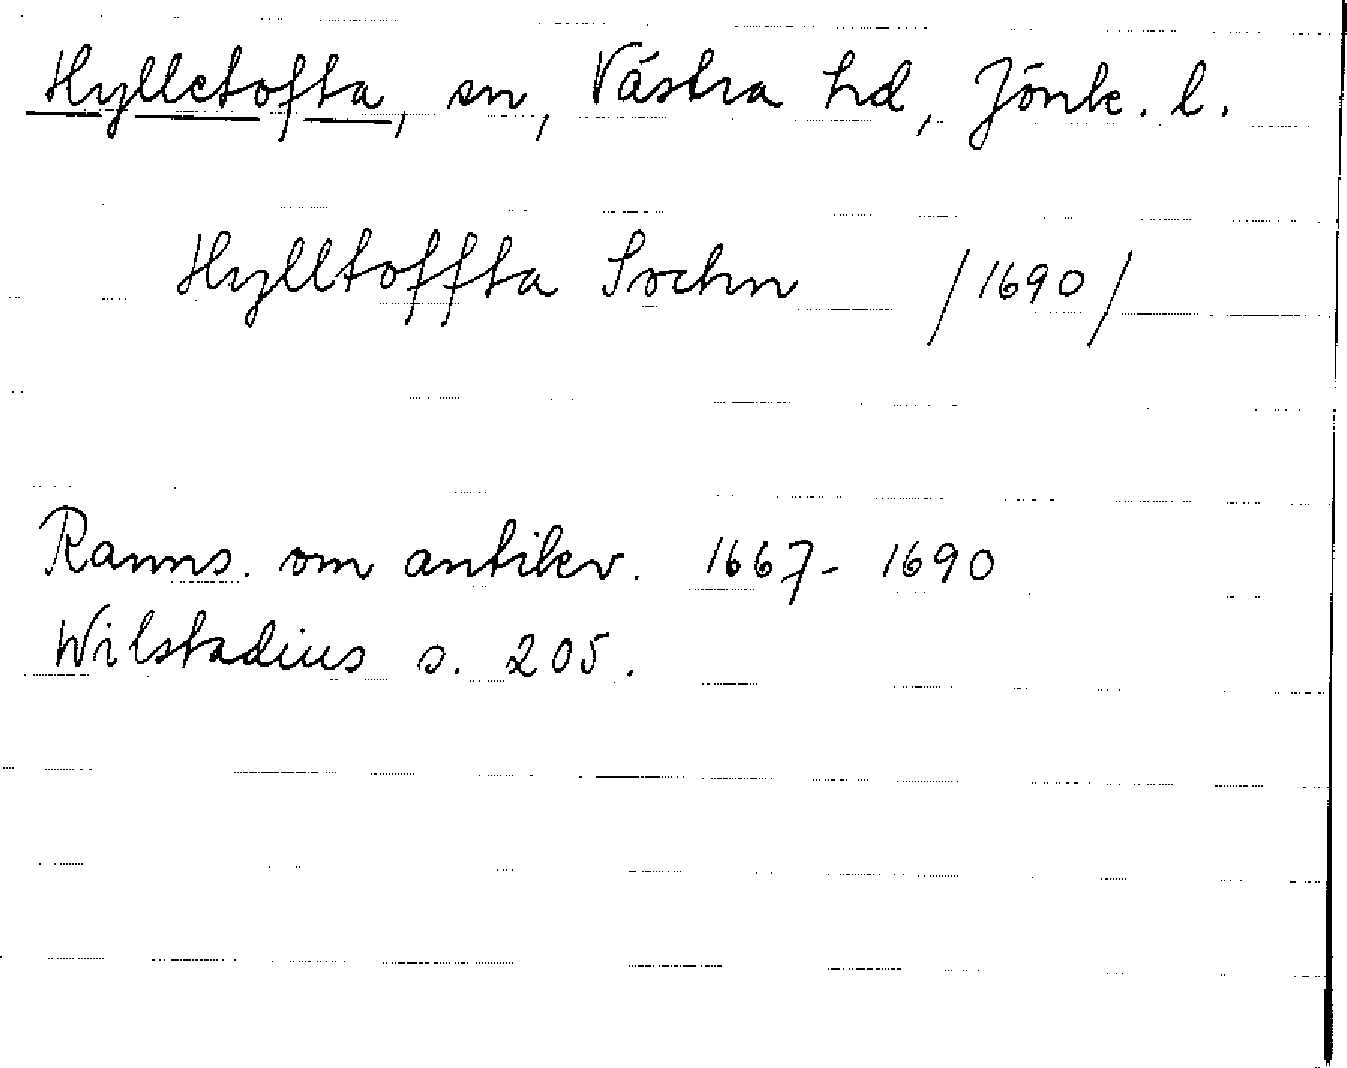 Hylletofta, sn, Västra hd, Jönk. l.
Hylltoffta Sochn /1690/
Ranns. om antikv. 1667-1690
Wilstadius s. 205.